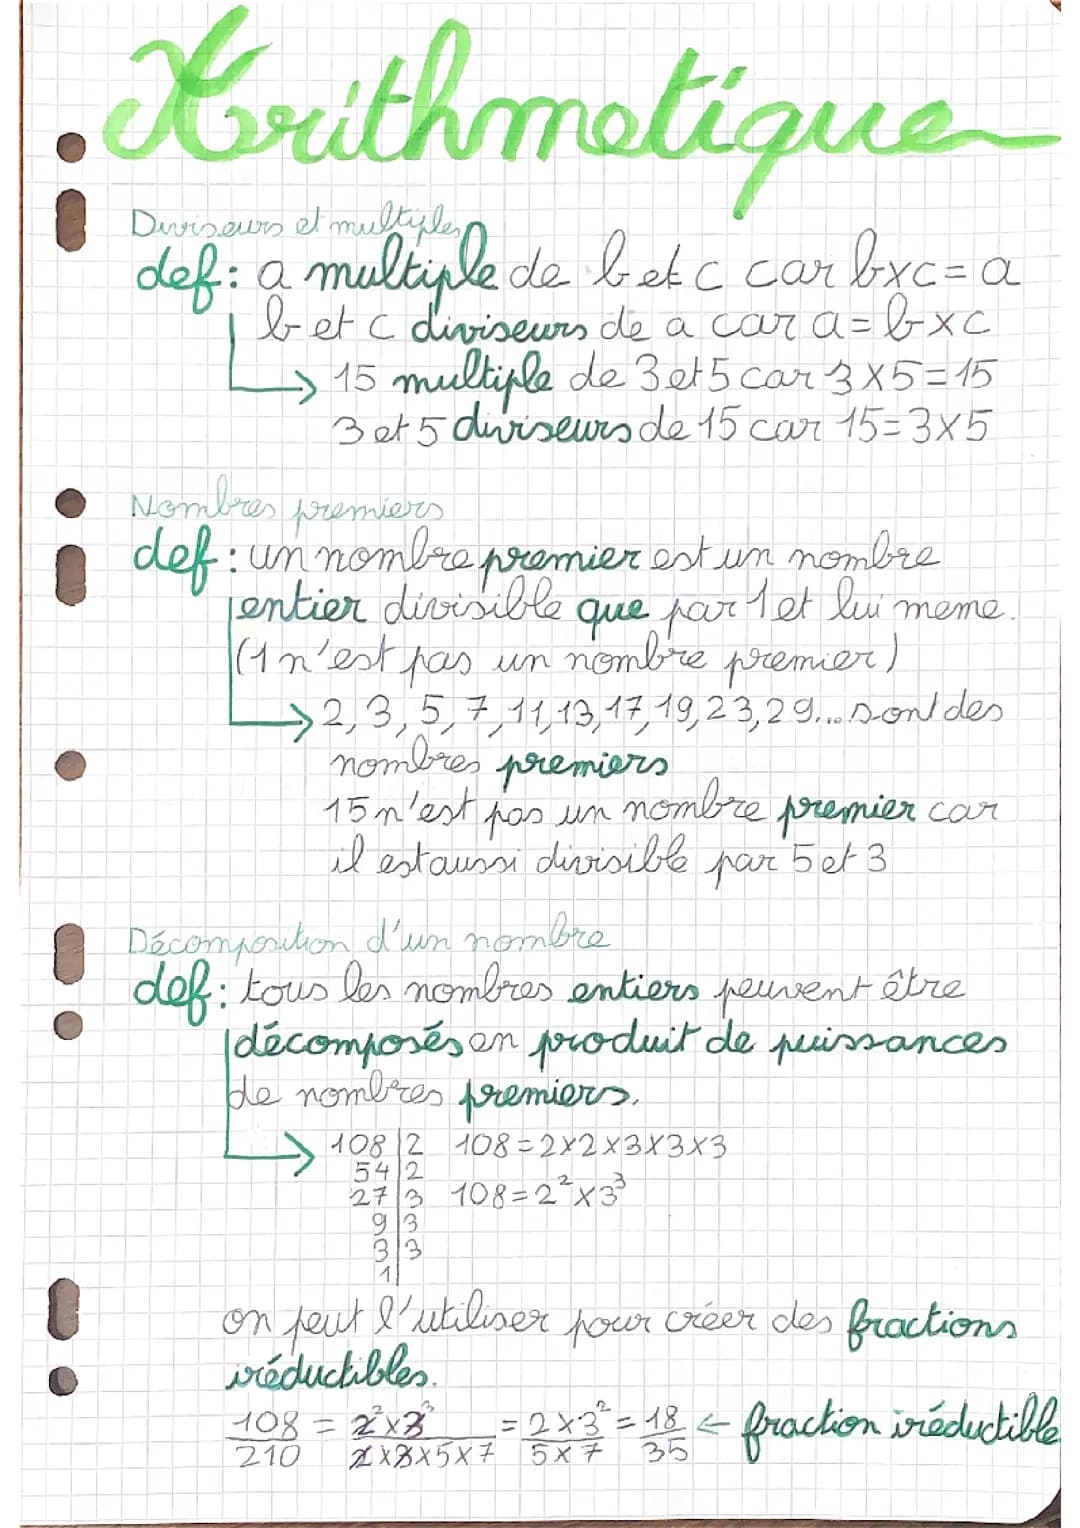 Arithmetique
Diviseurs et multiples
def: a multiple de b et c car b×c=a
b et c diviseurs de a car a=b×c
→ 15 multiple de 3 et 5 car 3×5=15
3 et 5 diviseurs de 15 car 15=3×5
Nombres premiers
def: un nombre premier est un nombre
entier divisible que par 1 et lui meme.
(1 n'est pas un nombre premier)
→ 2, 3, 5, 7, 11, 13, 17, 19, 23, 29... sont des
nombres premiers
15 n'est pas un nombre premier car
il est aussi divisible par 5 et 3
Décomposition d'un nombre
def: tous les nombres entiers peuvent être
décomposés en produit de puissances
de nombres premiers.
→ 108 | 2 108=2×2×3×3×3
54 | 2
27 | 3 108=2²×3³
9 | 3
3 | 3
1 |
on peut l'utiliser pour créer des fractions
iréductibles.
108/210 = 2²×3³/2×3×5×7 = 2×3²/5×7 = 18/35 ← fraction iréductible